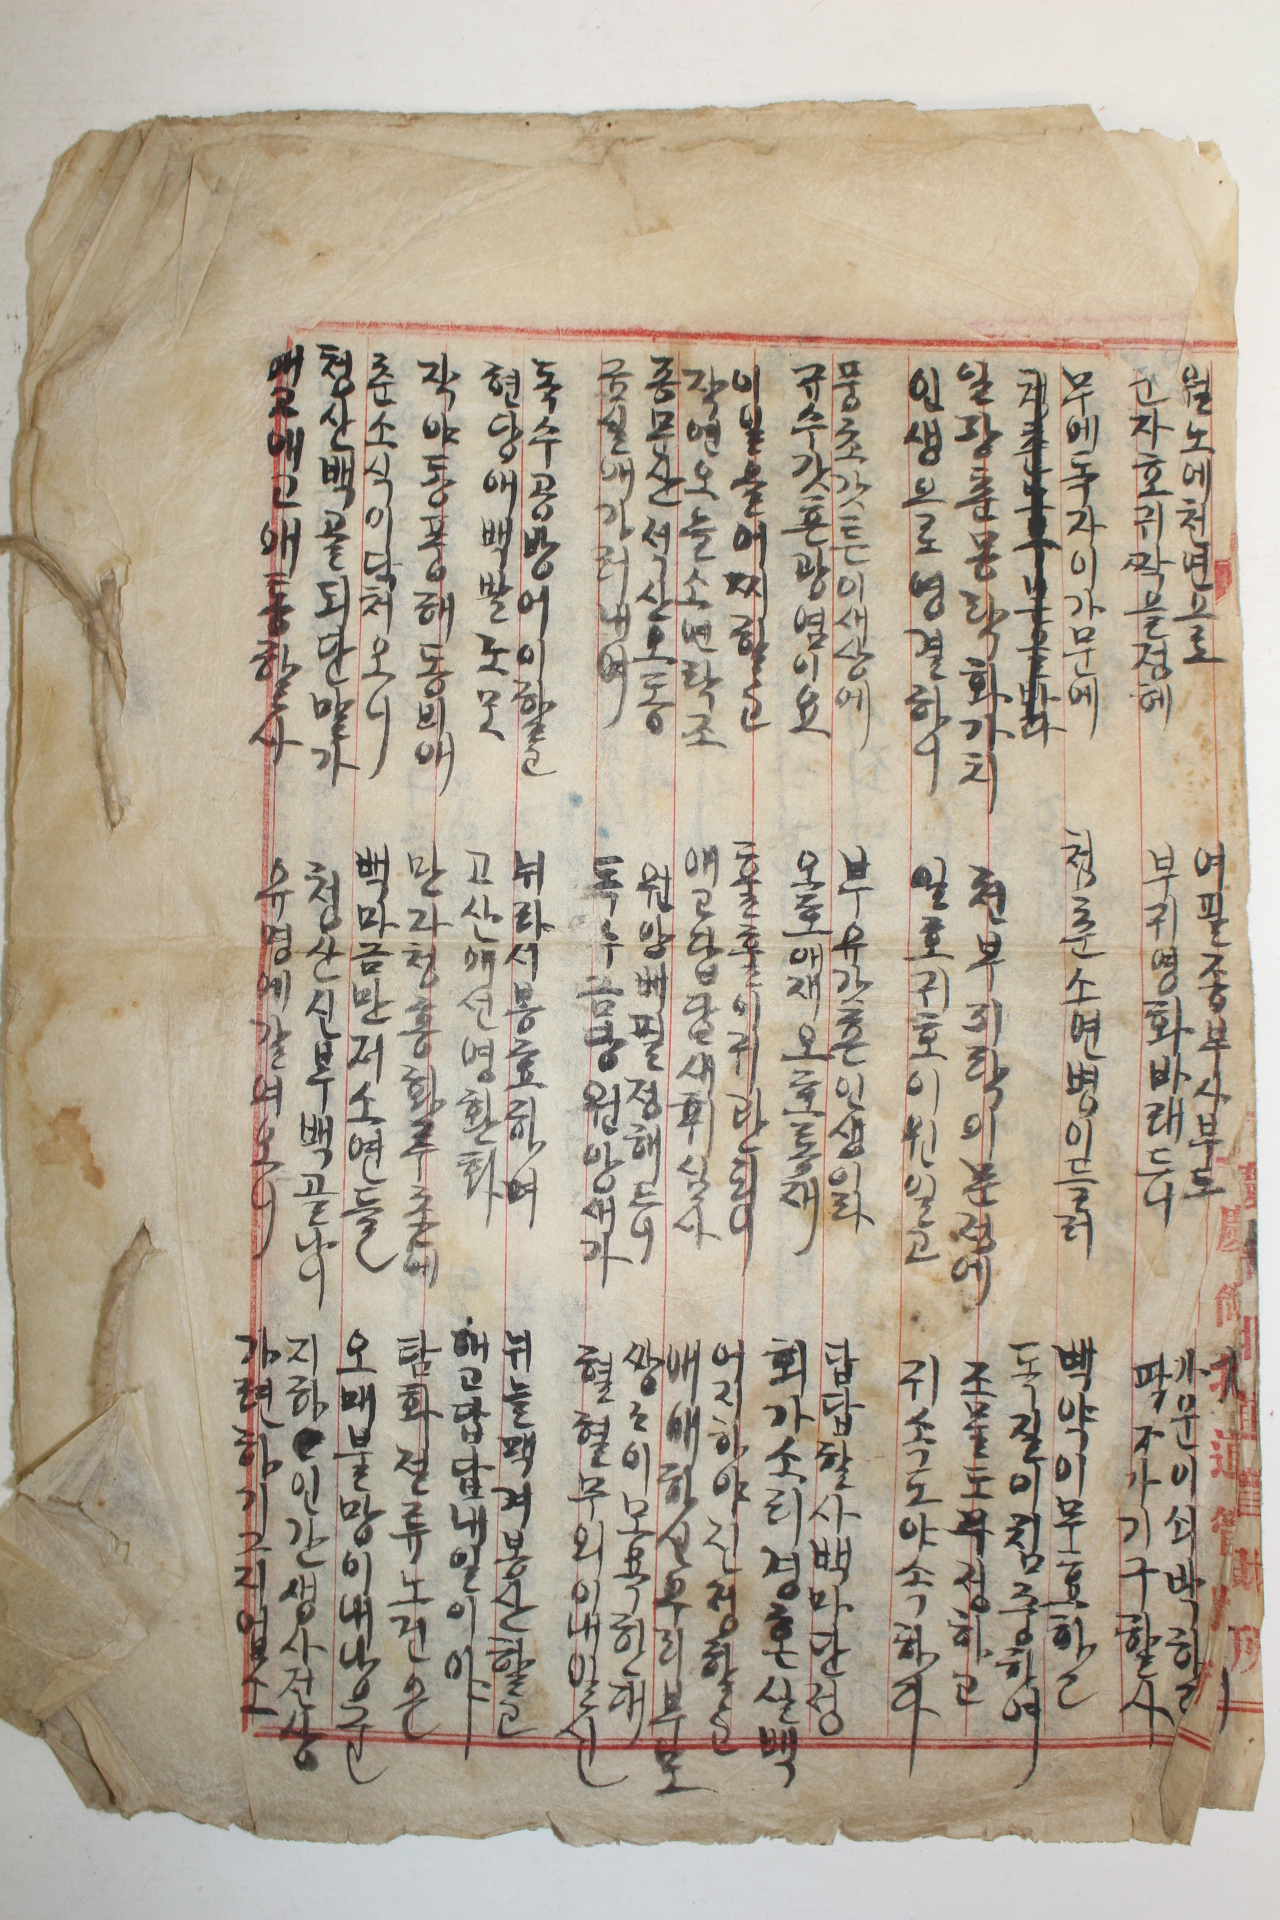 월노에천연으로 여필종부사부도 가문이쇠박하고
군자호귀짝을정헤 부귀영화바래드니 팔자가기구할사
무에독자이가문에 청춘소연병이드러 백약이무효하고
독질이침중하여
일장춘몽락화가치 천부지락의분정에 조물도부정하고
인생으로영결하니 일호귀호이원일고 귀속도야속하다
풍초갓튼이새상에 부유갓흔인생이라 답답할사백마단정
규수갓흔광염이요 오호애재오호통재 회가소리경혼산백
이일을어찌할고 훌훌이귀란되니 어지하야진정할고
작연오늘소변락조 애고답답새휘심사 배배하신부리부모
중무산석산오동 원앙배필정해드니 쌍々이모욕한대
금실애가러내여 독수금랑원앙새가 혈혈무의이내일신
독수공방어이할고 뉘라서봉효하며 뉘늘맥겨봉산할고
현당애백발노모 고산애선영환화 애고답답내일이야
작야동풍해동비애 만자청홍화루춘에 탐화절류노건은
춘소식이닥처오니 백마금안저소연들 오매불망이내낭군
청산백골되단말가 청산신부백골낭이 지하인간생사전상
애고애고애통할사 유영에갈여오니 가련하기그지업소